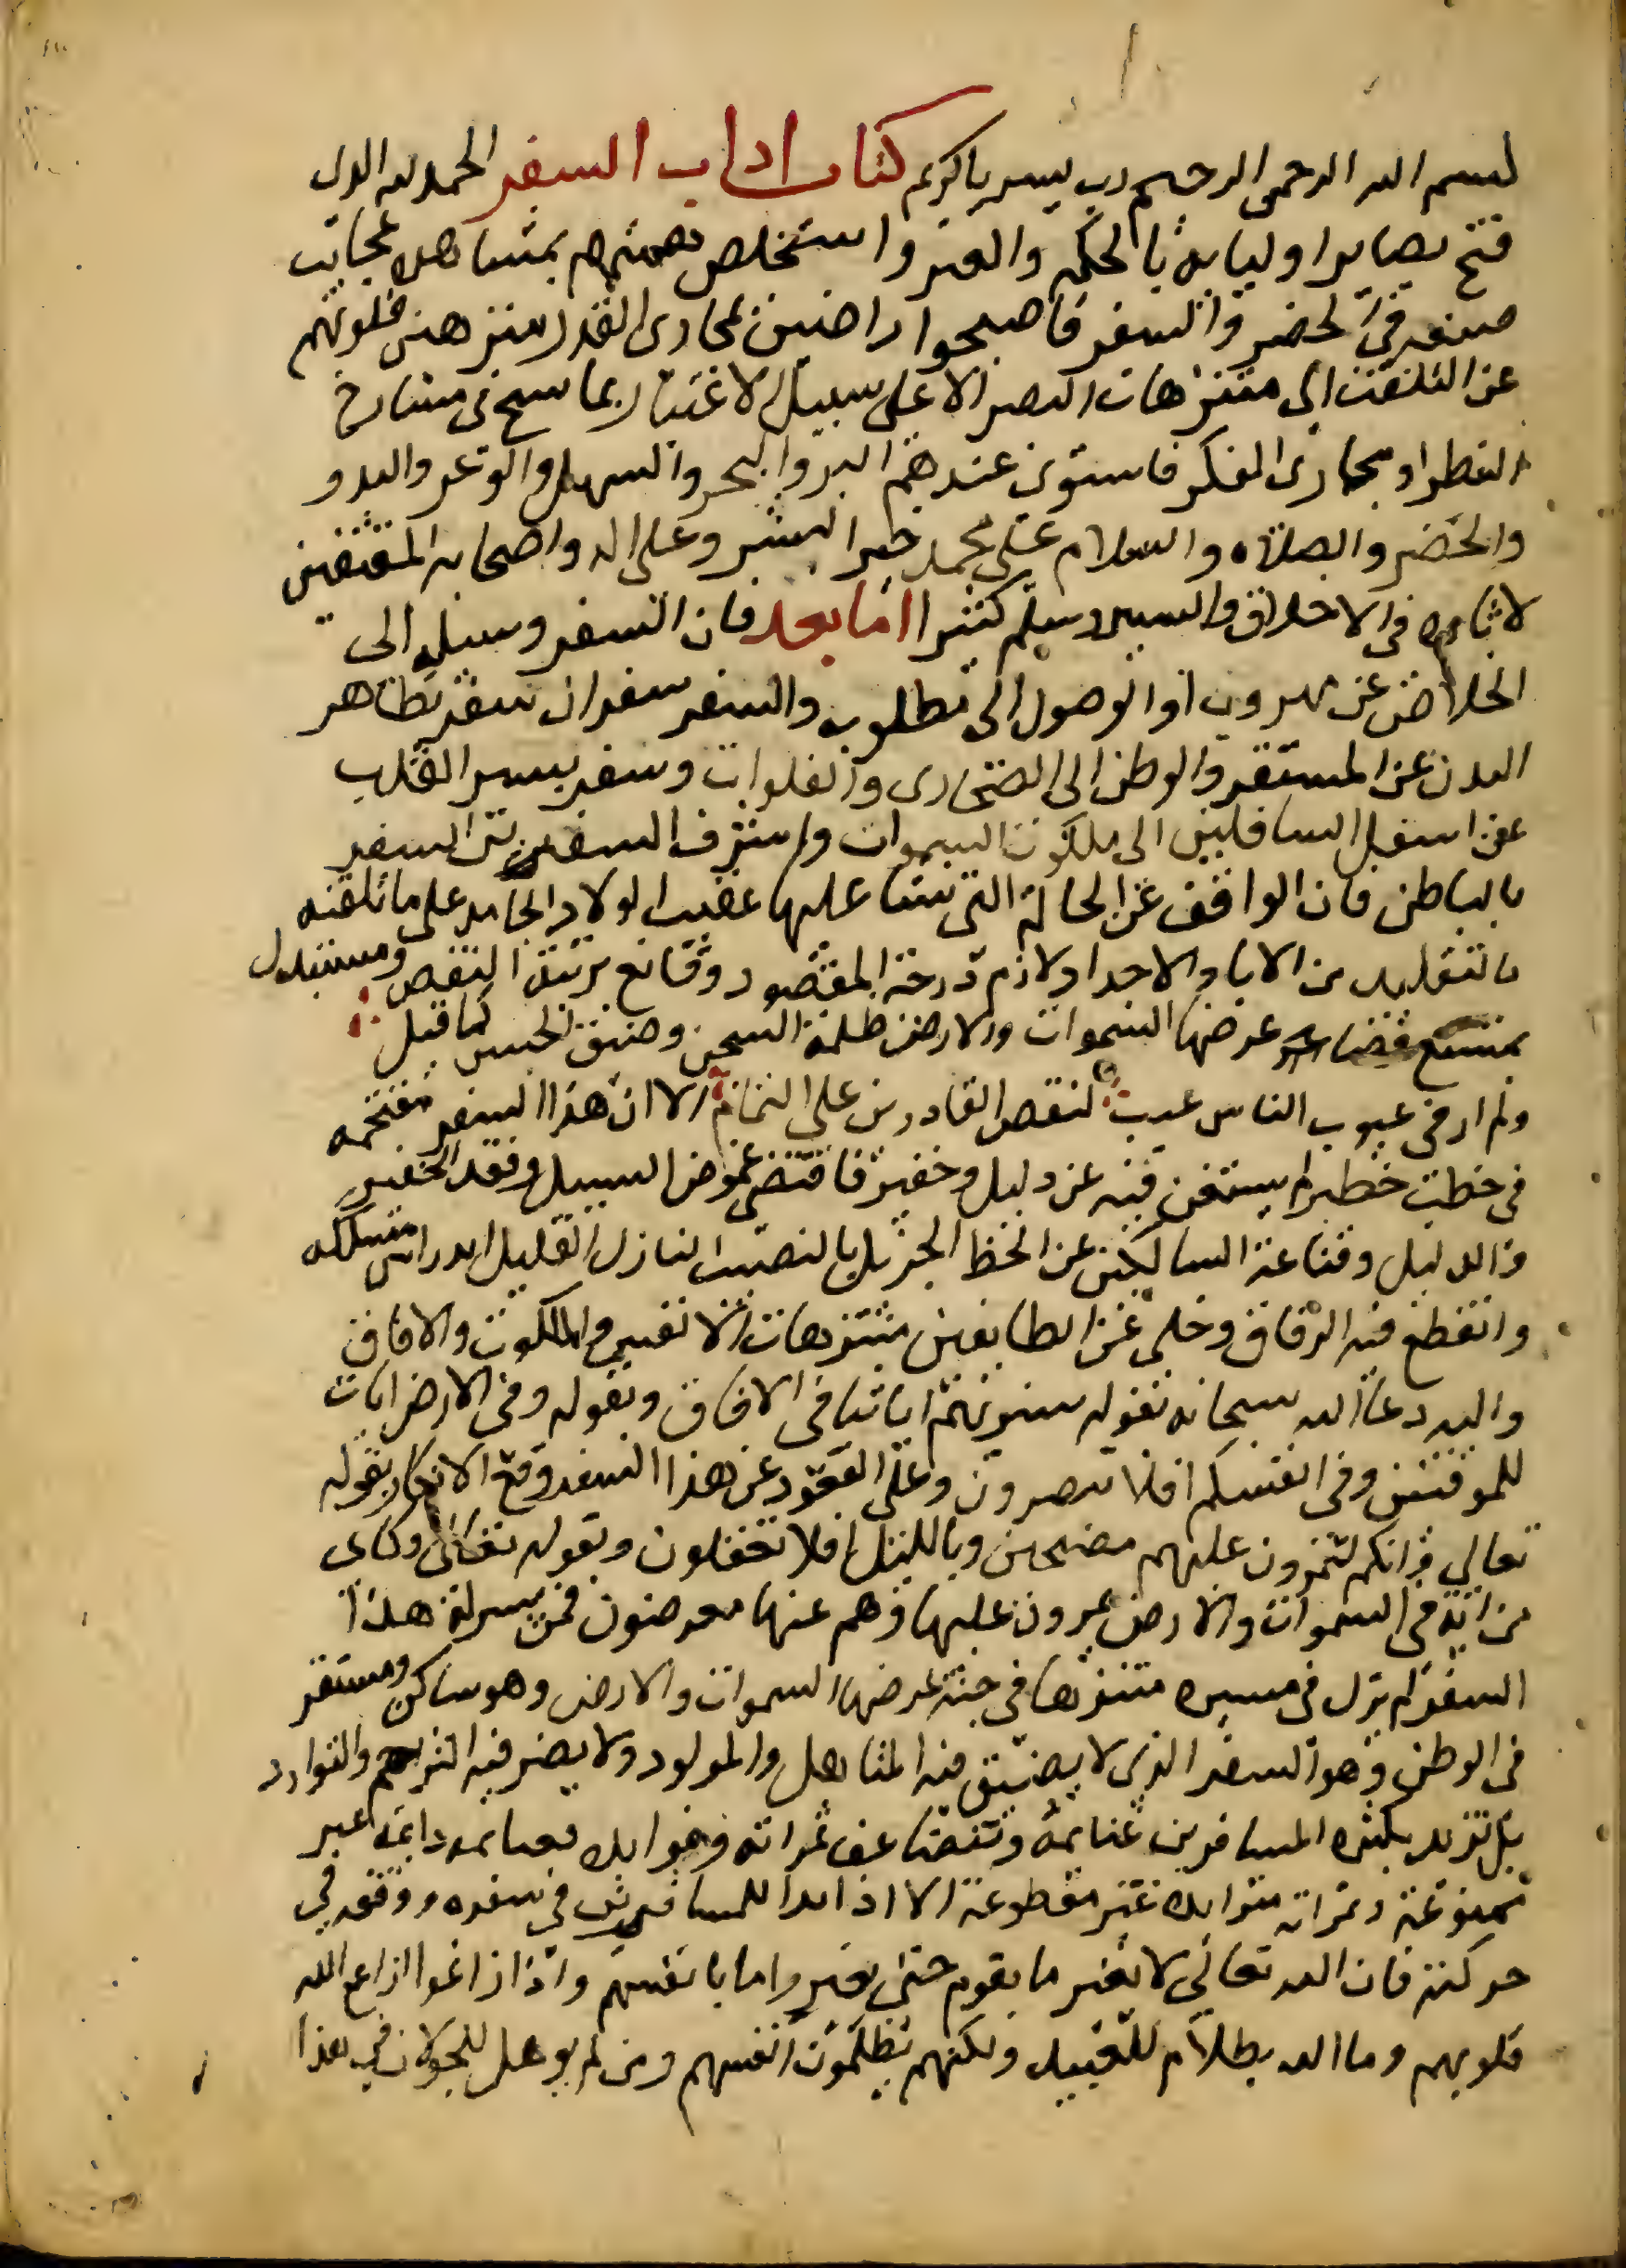 بسم الله الرحمن الرحيم رب يسر يا كريم كتاب اداب السفر الحمد لله الذي
فتح بصاير اوليايه بالحكم والعبر واستخلص هممهم بمشاهده عجايب
صنعه في الحضر والسفر فاصبحوا راضين بمجاري القدر منزهين قلوبهم
عن التلفت الى متنزهات البصر الا على سبيل الاعتبار بما سح في مسارح
النظر او مجاري الفكر فاستوى عندهم البر والبحر والسهل والوعر والبدو
والحضر والصلاه والسلام على محمد خير البشر وعلى اله واصحابه المقتفين
لاثاره في الاخلاق والسير وسلم كثيرا اما بعد فان السفر وسيله الى
الخلاص عن مهروب او الوصول الى مطلوب والسفر سفران سفر بظاهر
البدن عن المستقر والوطن الى الصحارى والفلوات وسفر بسير القلب
عن اسفل السافلين الى ملكوت السموات واشرف السفرين السفر
بالباطن فان الواقف عن الحالة التي نشا عليها عقيب الولاد الجامد على ما تلقنه
بالتقليد من الابا والاجداد لازم درجة المقصود وقانع برتبة النقص ومستبدل
بمتسع فضا عرضها السموات والارض ظلمة السجن وضيق الحبس كما قيل
ولم ار في عيوب الناس عيبا كنقص القادرين على التمام الا ان هذا السفر مقتحمه
في خطب خطير لم يستغن فيه عن دليل وخفير فاقتضى غموض السبيل وفقد الخفير
والدليل وقناعة السالكين عن الحظ الجزيل بالنصيب النازل القليل اندراس مسلكه
وانقطع فيه الرفاق وخلى عن الطايفين متنزهات الانفس والملكوت والافاق
واليه دعا الله سبحانه بقوله سنريهم اياتنا في الافاق وبقوله وفي الارض ايات
للموقنين وفي انفسكم افلا تبصرون وعلى القعود عن هذا السفر وقع الانكار بقوله
تعالى وانكم لتمرون عليهم مصبحين وبالليل افلا تعقلون وبقوله تعالى وكاين
من اية في السموات والارض يمرون عليها وهم عنها معرضون فمن يسر له هذا
السفر لم يزل في مسيره متنزها في جنة عرضها السموات والارض وهو ساكن ومستقر
في الوطن وهو السفر الذي لا يضيق فيه المناهل والمولود ولا يضر فيه التزاحم والتوارد
بل تزيد بكثره المسافرين غنايمه وتتضاعف ثمراته وفوايده فغنايمه دايمة غير
ممنوعة وثمراته متزايده غير مقطوعة الا اذا بدا للمسافر في سفره ووقفه في
حركته فان الله تعالى لا يغير ما بقوم حتى يغيروا ما بانفسهم واذا زاغوا ازاغ الله
قلوبهم وما الله بظلام للعبيد ولكنهم يظلمون انفسهم ومن لم يوهل للجولان في هذا